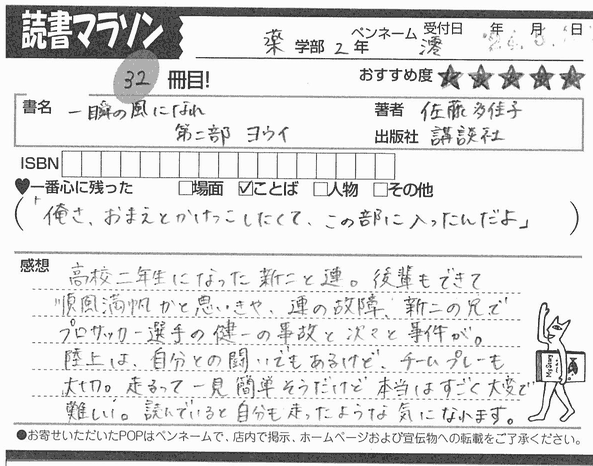 読書マラソン
薬 学部 2 年 ペンネーム 澪 受付日 年 月 日
32 冊目!
おすすめ度 ★★★★★
書名 一瞬の風になれ
第二部 ヨウイ
著者 佐藤多佳子
出版社 講談社
ISBN
♥一番心に残った □場面 ☑ことば □人物 □その他
(「俺さ、おまえとかけっこしたくて、この部に入ったんだよ」)
感想
高校二年生になった新二と連。後輩もできて
順風満帆かと思いきや、連の故障、新二の兄で
プロサッカー選手の健一の事故と次々と事件が。
陸上は、自分との闘いでもあるけど、チームプレーも
大切。走るって一見簡単そうだけど本当はすごく大変で
難しい。読んでいると自分も走ったような気になれます。
●お寄せいただいたPOPはペンネームで、店内で掲示、ホームページおよび宣伝物への転載をご了承ください。